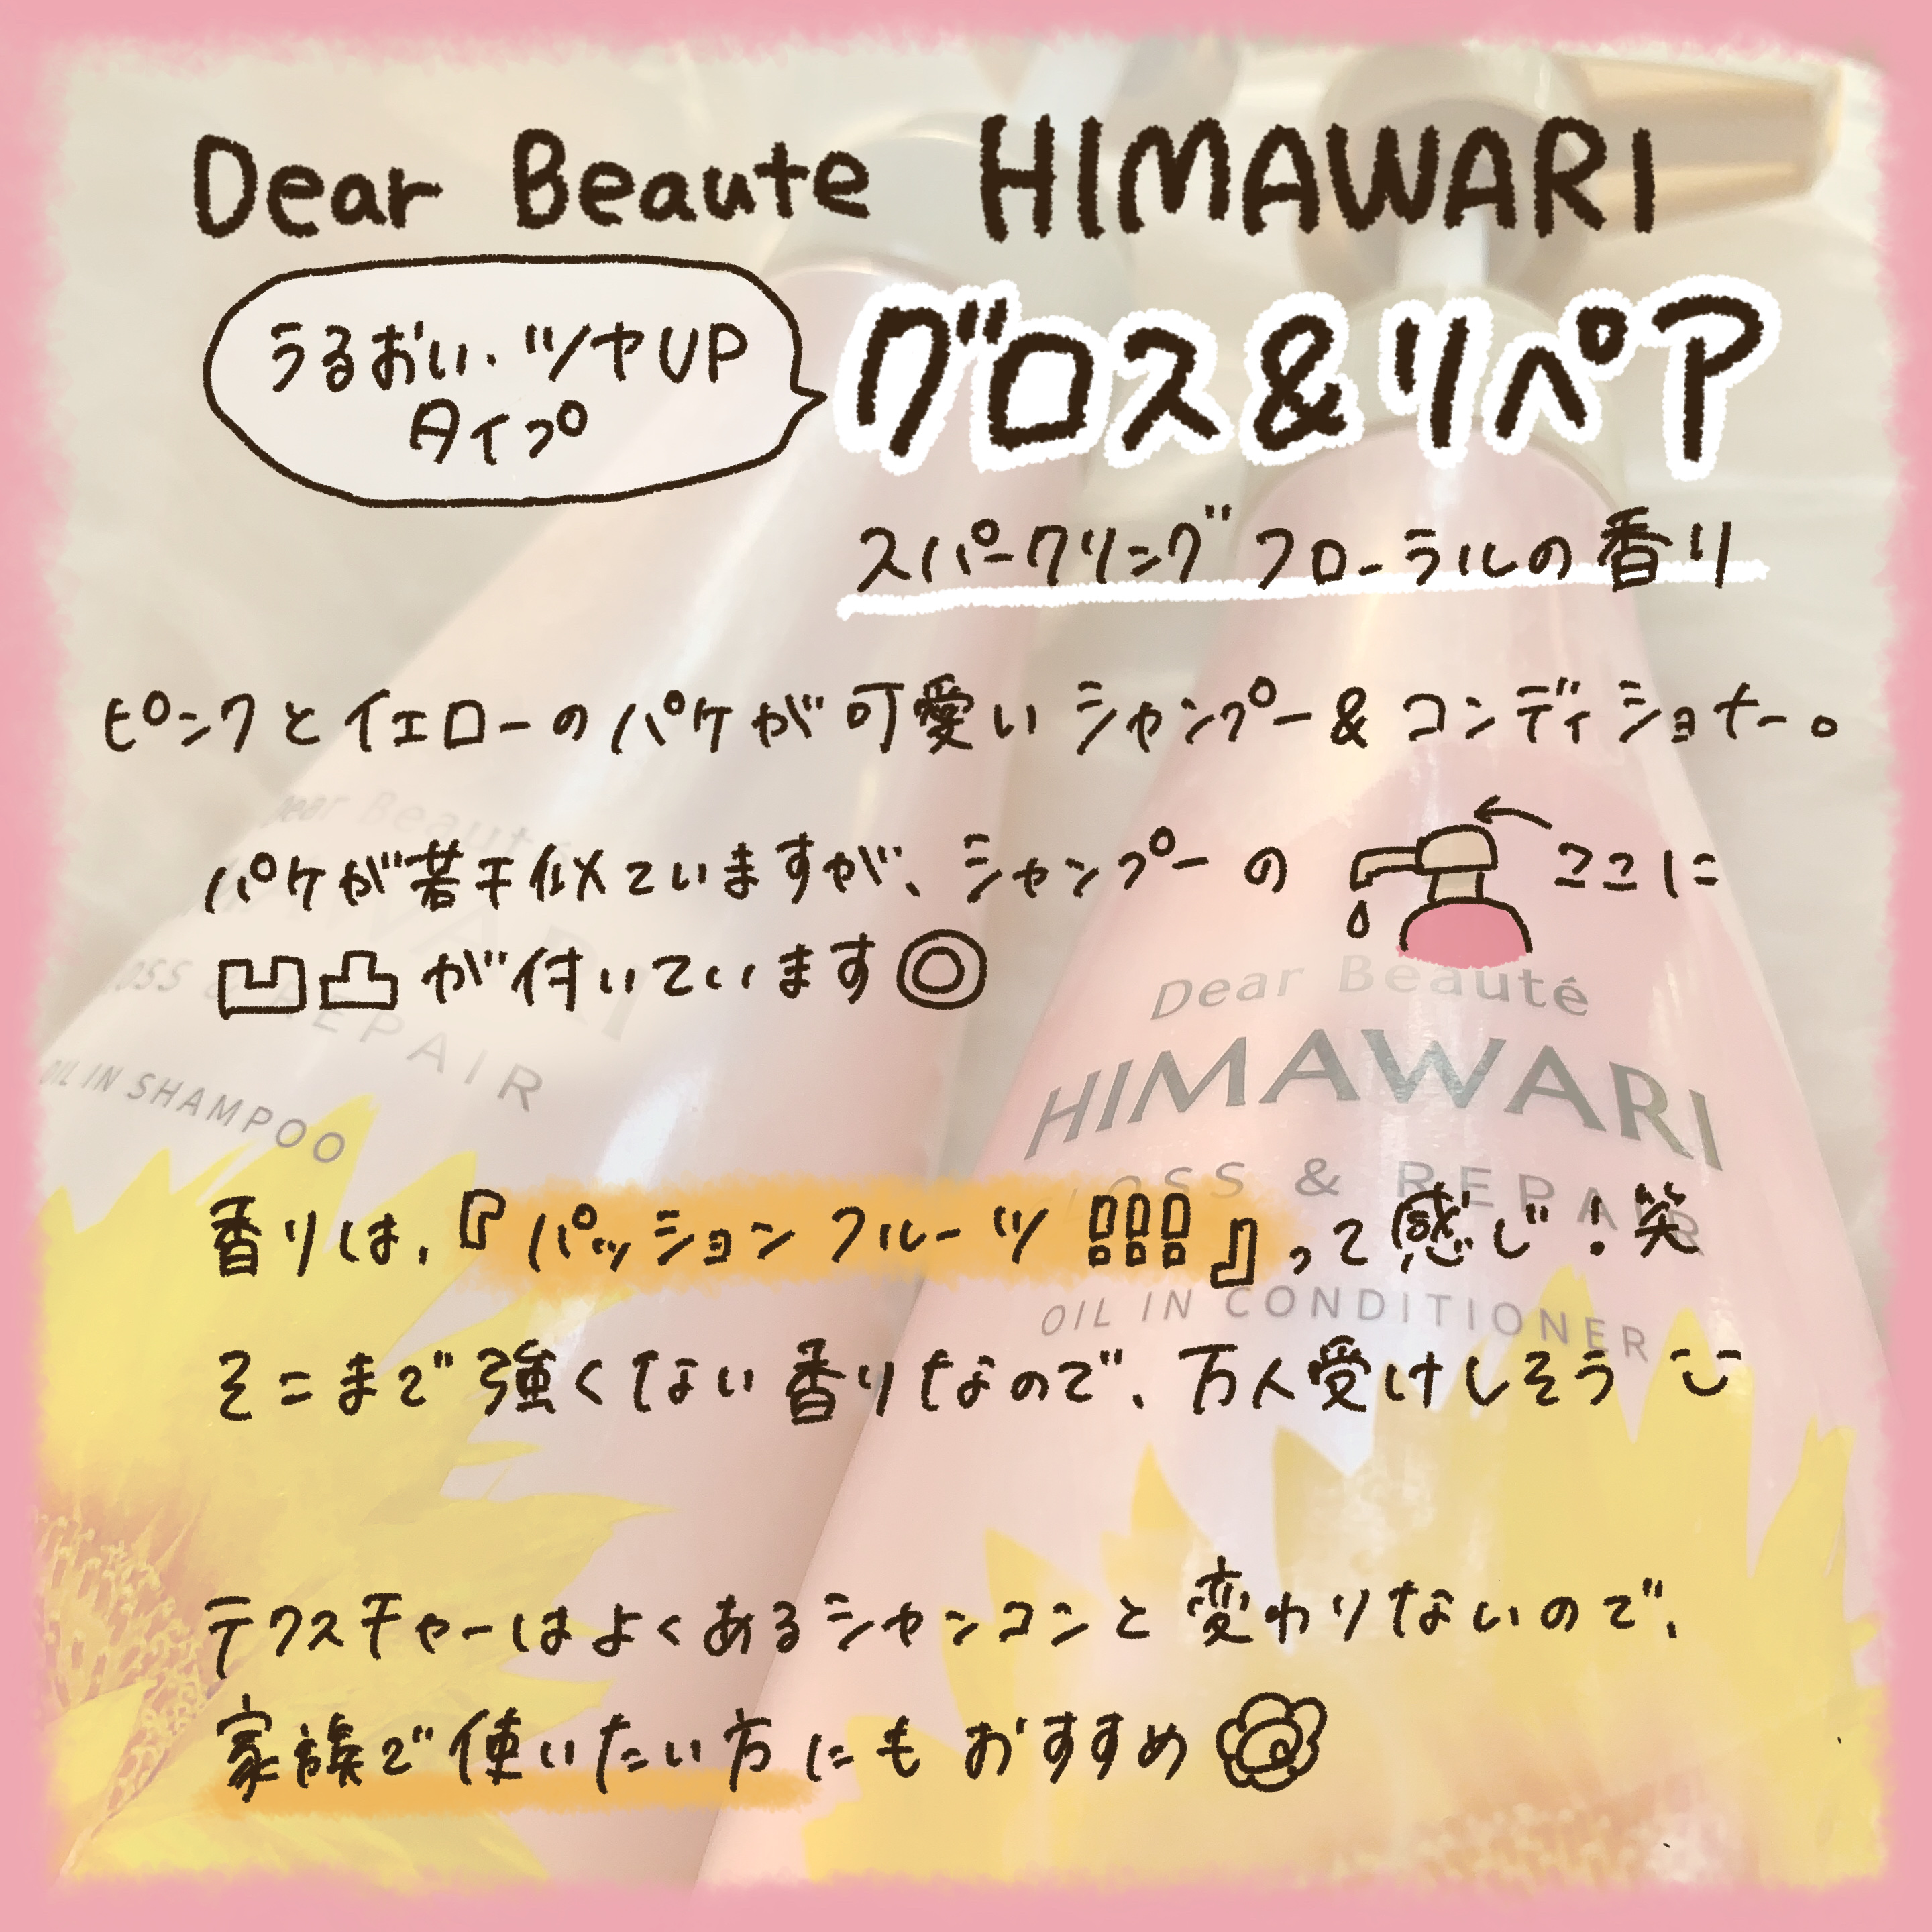 Dear Beaute HIMAWARI
うるおい・ツヤUP
タイプ
グロス&リペア
スパークリングフローラルの香り
ピンクとイエローのパケが可愛いシャンプー&コンディショナー。
パケが若干似ていますが、シャンプーの ここに
凹凸が付いています◎
香りは、『パッションフルーツ!!!』って感じ!笑
そこまで強くない香りなので、万人受けしそう
テクスチャーはよくあるシャンコンと変わりないので、
家族で使いたい方にもおすすめ
Dear Beauté
HIMAWARI
GLOSS & REPAIR
OIL IN SHAMPOO
Dear Beauté
HIMAWARI
GLOSS & REPAIR
OIL IN CONDITIONER